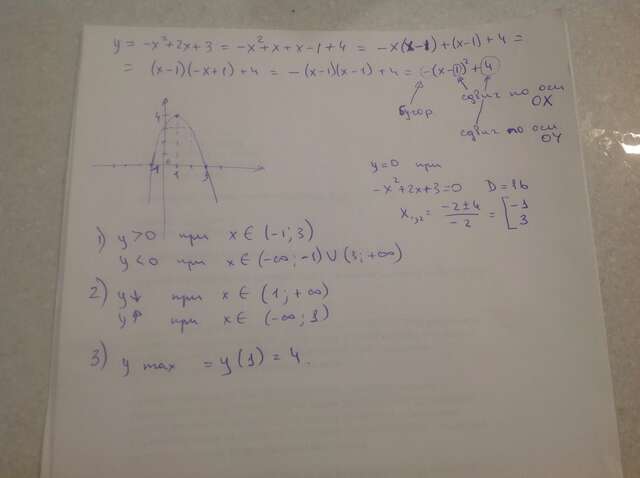 y = -x²+2x+3 = -x²+x+x-1+4 = -x(x-1)+(x-1)+4 =
= (x-1)(-x+1)+4 = -(x-1)(x-1)+4 = -(x-1)²+4
бугор
сдвиг по оси
OX
сдвиг по оси
OY
4
-1
1
3
y=0 при
-x²+2x+3=0 D=16
x₁,₂ = \frac{-2±4}{-2} = [-1
3
1) y>0 при x∈(-1;3)
y<0 при x∈(-∞;-1)∪(3;+∞)
2) y↓ при x∈(1;+∞)
y↑ при x∈(-∞;1)
3) y max = y(1) = 4.